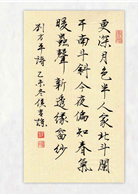 更深月色半人家北斗闌
干南斗斜今夜偏知春氣
暖蟲聲新透綠窗紗
劉方平詩乙未冬